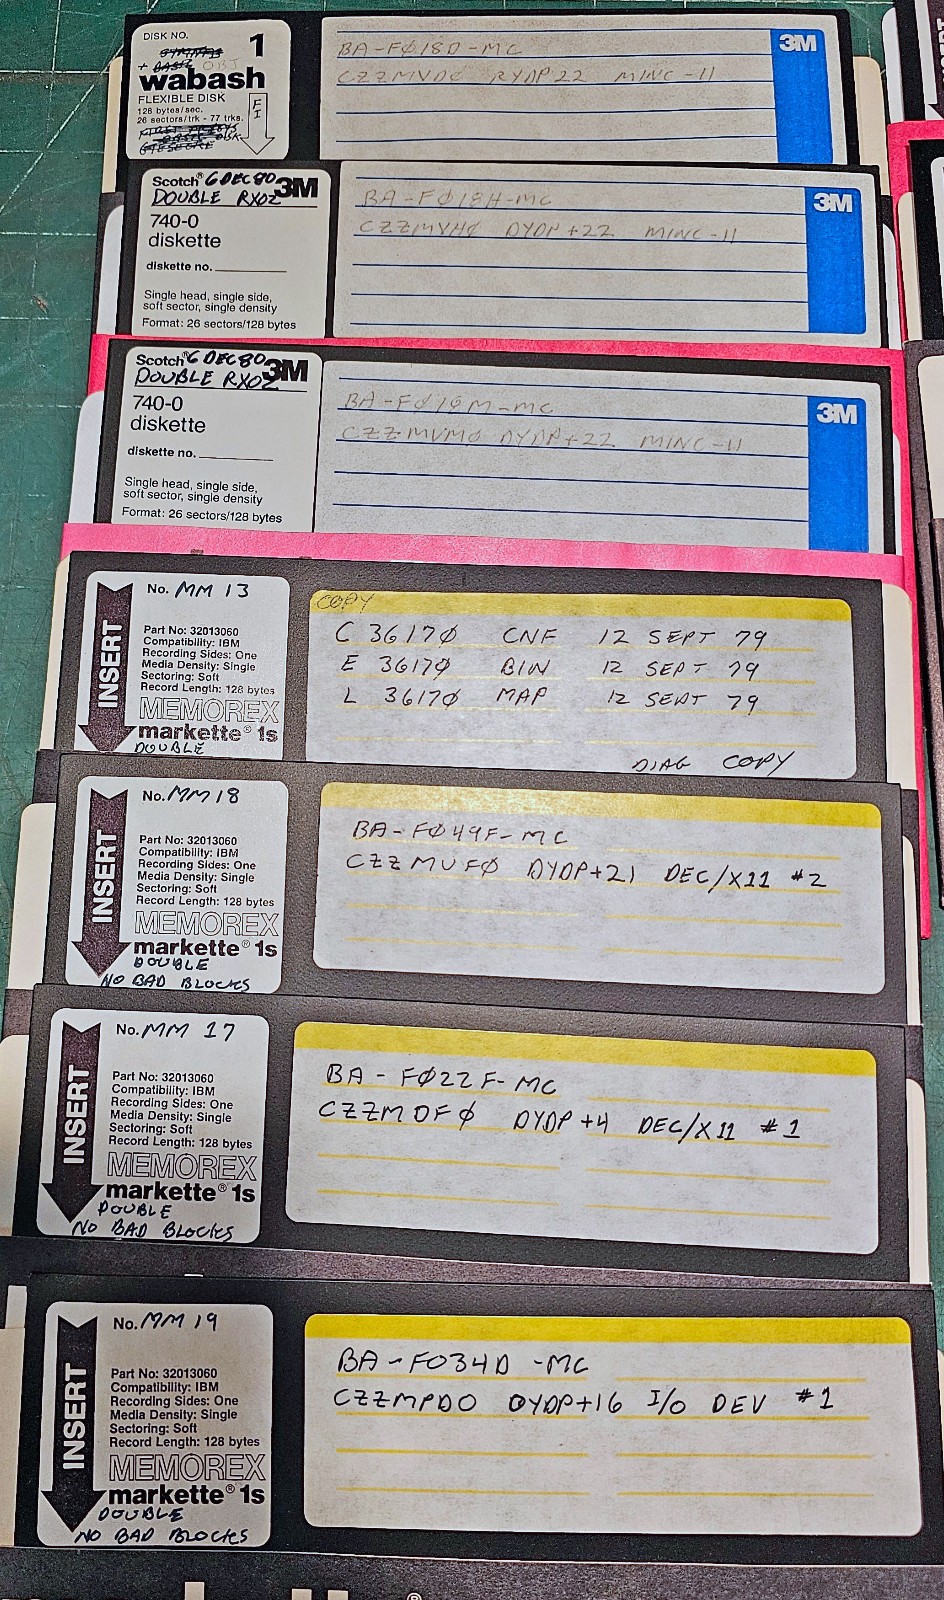 DISK NO. 1
+ BASIC OBJ
wabash
FLEXIBLE DISK
128 bytes/sec.
26 sectors/trk - 77 trks.
BA-FØ18D-MC
CZZMVDØ RYDP22 MINC-11
3M
Scotch® 6 DEC 80 3M
DOUBLE RX02
740-0
diskette
diskette no.
Single head, single side,
soft sector, single density
Format: 26 sectors/128 bytes
BA-FØ18H-MC
CZZMVHØ DYDP+22 MINC-11
3M
Scotch® 6 DEC 80 3M
DOUBLE RX02
740-0
diskette
diskette no.
Single head, single side,
soft sector, single density
Format: 26 sectors/128 bytes
BA-FØ18M-MC
CZZMVMØ DYDP+22 MINC-11
3M
INSERT
No. MM 13
Part No: 32013060
Compatibility: IBM
Recording Sides: One
Media Density: Single
Sectoring: Soft
Record Length: 128 bytes
MEMOREX
markette® 1s
DOUBLE
COPY
C 3617Ø CNF 12 SEPT 79
E 3617Ø BIN 12 SEPT 79
L 3617Ø MAP 12 SEPT 79
DIAG COPY
INSERT
No. MM 18
Part No: 32013060
Compatibility: IBM
Recording Sides: One
Media Density: Single
Sectoring: Soft
Record Length: 128 bytes
MEMOREX
markette® 1s
DOUBLE
NO BAD BLOCKS
BA-FØ49F-MC
CZZMUFØ DYDP+21 DEC/X11 #2
INSERT
No. MM 17
Part No: 32013060
Compatibility: IBM
Recording Sides: One
Media Density: Single
Sectoring: Soft
Record Length: 128 bytes
MEMOREX
markette® 1s
DOUBLE
NO BAD BLOCKS
BA-FØ22F-MC
CZZMDFØ DYDP+4 DEC/X11 #1
INSERT
No. MM 19
Part No: 32013060
Compatibility: IBM
Recording Sides: One
Media Density: Single
Sectoring: Soft
Record Length: 128 bytes
MEMOREX
markette® 1s
DOUBLE
NO BAD BLOCKS
BA-F034D-MC
CZZMPD0 DYDP+16 I/O DEV #1